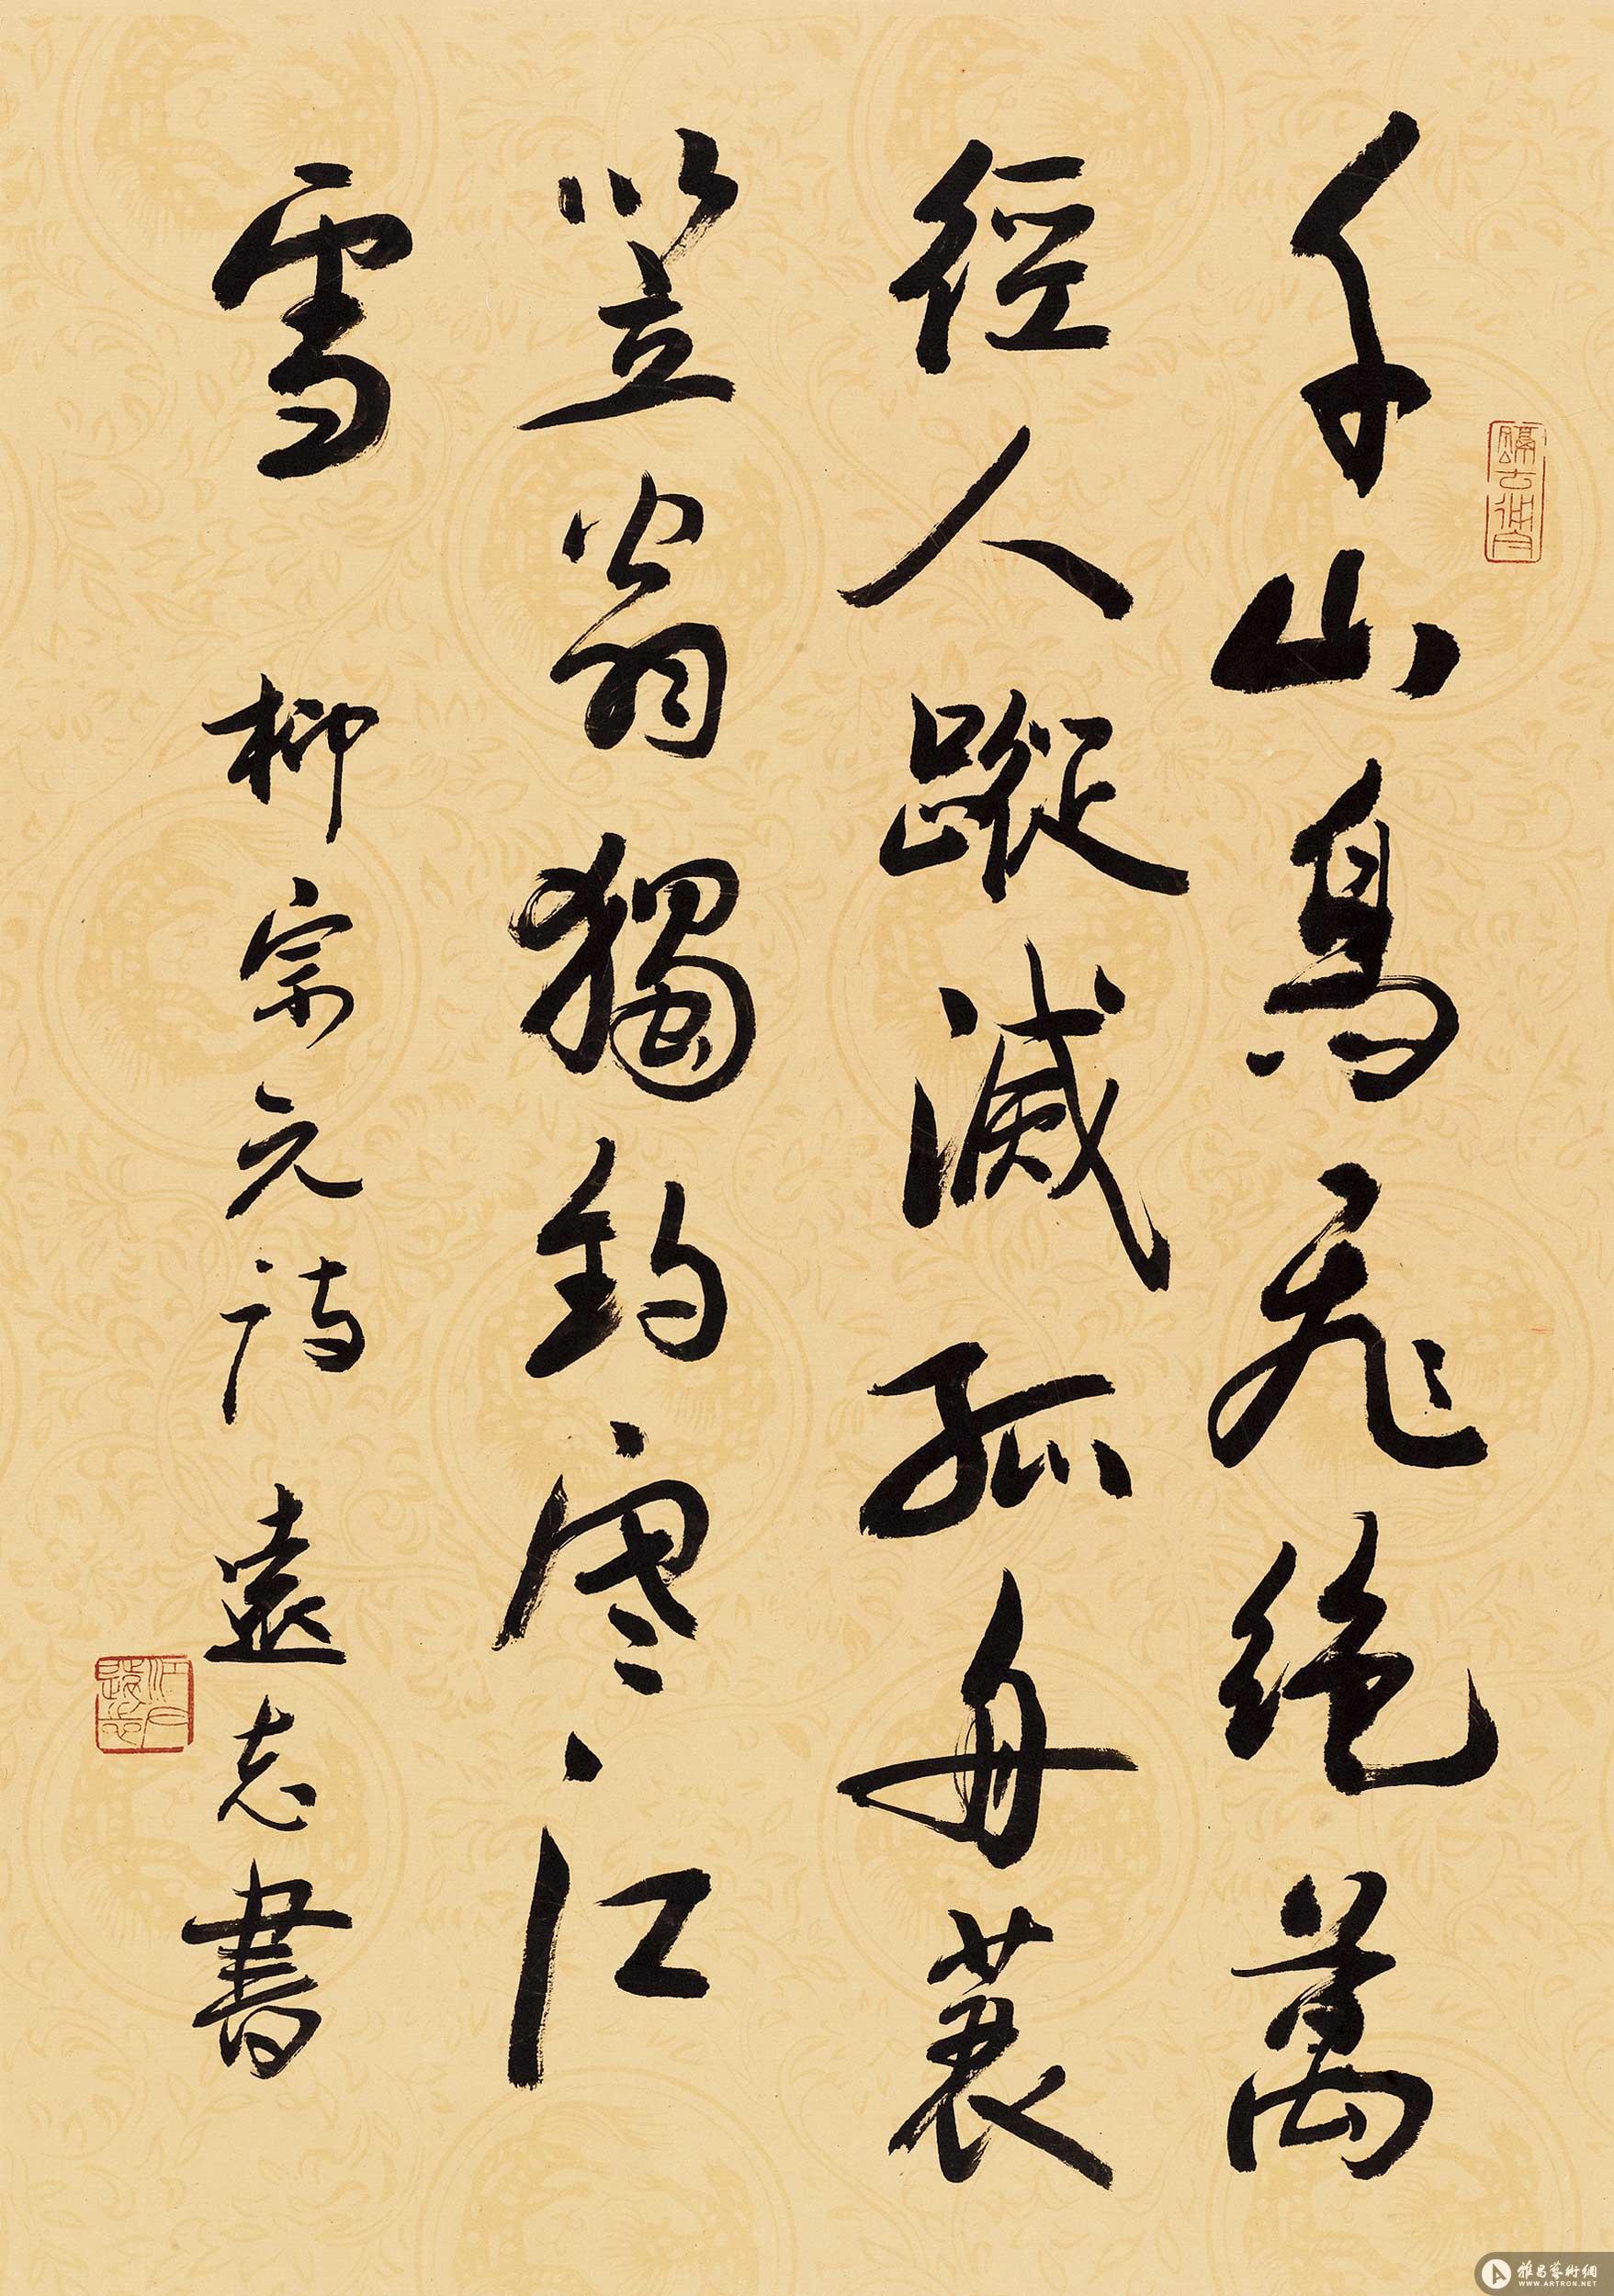 千山鳥飛絕萬
徑人蹤滅孤舟蓑
笠翁獨釣寒江
雪 柳宗元詩 遠志書
雅昌藝術網
WWW.ARTRON.NET